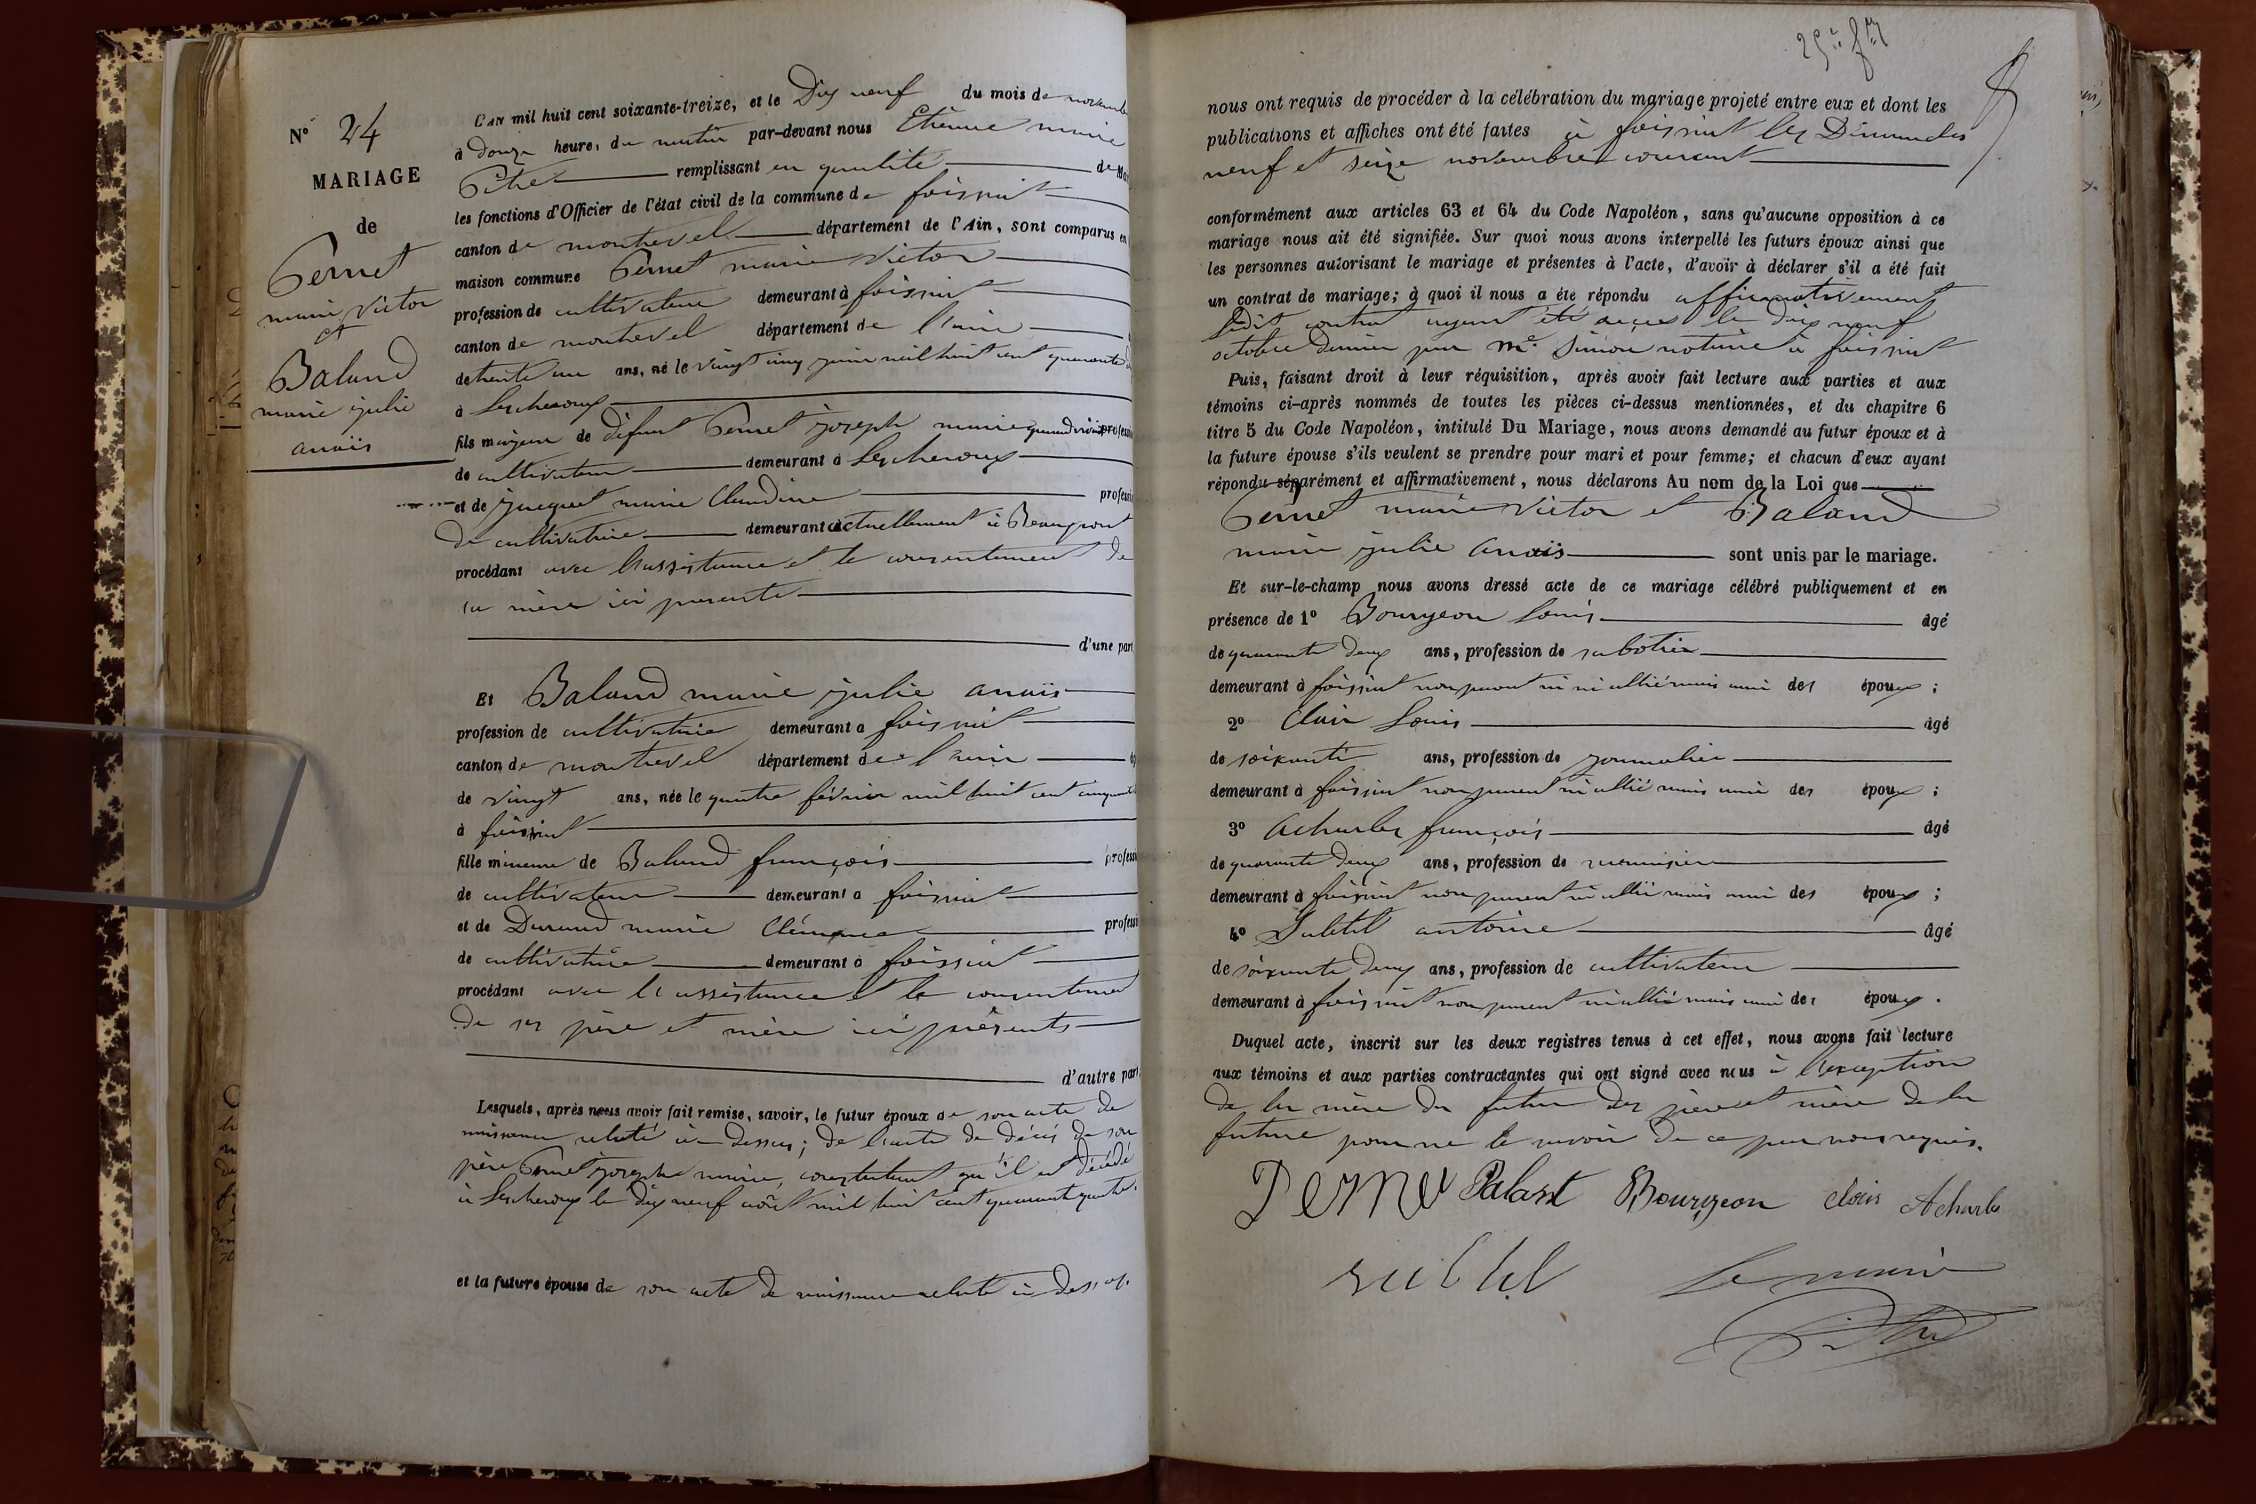 N° 24
MARIAGE
de
Pernet
marie victor
et
Baland
marie julie
anaïs
L'AN mil huit cent soixante-treize, et le Dix neuf du mois de novembre
à Douze heure, du matin par-devant nous Etienne marie
remplissant en qualité de Maire
les fonctions d'Officier de l'état civil de la commune de foissiat
canton de montrevel département de l'Ain, sont comparus en
maison commune Pernet marie victor
profession de cultivateur demeurant à foissiat
canton de montrevel département de l'ain
de trente un ans, né le vingt cinq juin mil huit cent quarante
à Lescheroux
fils majeur de défunt Pernet joseph marie quand vivait profession
de cultivateur demeurant à Lescheroux
et de jacquet marie Claudine profession
de cultivatrice demeurant actuellement à Beaupont
procédant avec l'assistance et le consentement de
sa mère ici présente
d'une part
Et Baland marie julie anaïs
profession de cultivatrice demeurant a foissiat
canton de montrevel département de l'ain
de vingt ans, née le quatre février mil huit cent cinquante
à foissiat
fille mineure de Baland françois profession
de cultivateur demeurant a foissiat
et de Durand marie Clémence profession
de cultivatrice demeurant à foissiat
procédant avec l'assistance et le consentement
de ses père et mère ici présents
d'autre part.
Lesquels, après nous avoir fait remise, savoir, le futur époux de son acte de
naissance relaté ci-dessus; de l'acte de décès de son
père Pernet joseph marie, constatant qu'il est décédé
à Lescheroux le dix neuf août mil huit cent quarante quatre.
et la future épouse de son acte de naissance relaté ci-dessus.
nous ont requis de procéder à la célébration du mariage projeté entre eux et dont les
publications et affiches ont été faites à foissiat les Dimanches
neuf et seize novembre courant
conformément aux articles 63 et 64 du Code Napoléon, sans qu'aucune opposition à ce
mariage nous ait été signifiée. Sur quoi nous avons interpellé les futurs époux ainsi que
les personnes autorisant le mariage et présentes à l'acte, d'avoir à déclarer s'il a été fait
un contrat de mariage; à quoi il nous a été répondu affirmativement
ledit contrat ayant été reçu le dix neuf
octobre dernier par Me Simon notaire à foissiat
Puis, faisant droit à leur réquisition, après avoir fait lecture aux parties et aux
témoins ci-après nommés de toutes les pièces ci-dessus mentionnées, et du chapitre 6
titre 5 du Code Napoléon, intitulé Du Mariage, nous avons demandé au futur époux et à
la future épouse s'ils veulent se prendre pour mari et pour femme; et chacun d'eux ayant
répondu séparément et affirmativement, nous déclarons Au nom de la Loi que
Pernet marie victor et Baland
marie julie anaïs sont unis par le mariage.
Et sur-le-champ nous avons dressé acte de ce mariage célébré publiquement et en
présence de 1° Bourgeon Louis âgé
de quarante deux ans, profession de sabotier
demeurant à foissiat non parent ni allié mais ami des époux;
2° Clair Louis âgé
de soixante ans, profession de journalier
demeurant à foissiat non parent ni allié mais ami des époux;
3° Acharles françois âgé
de quarante deux ans, profession de menuisier
demeurant à foissiat non parent ni allié mais ami des époux;
4° antoine âgé
de soixante deux ans, profession de cultivateur
demeurant à foissiat non parent ni allié mais ami des époux.
Duquel acte, inscrit sur les deux registres tenus à cet effet, nous avons fait lecture
aux témoins et aux parties contractantes qui ont signé avec nous à l'exception
de la mère du futur des père et mère de la
future pour ne le savoir de ce par nous requis.
Pernet Balant Bourgeon Clair Acharle
Le maire